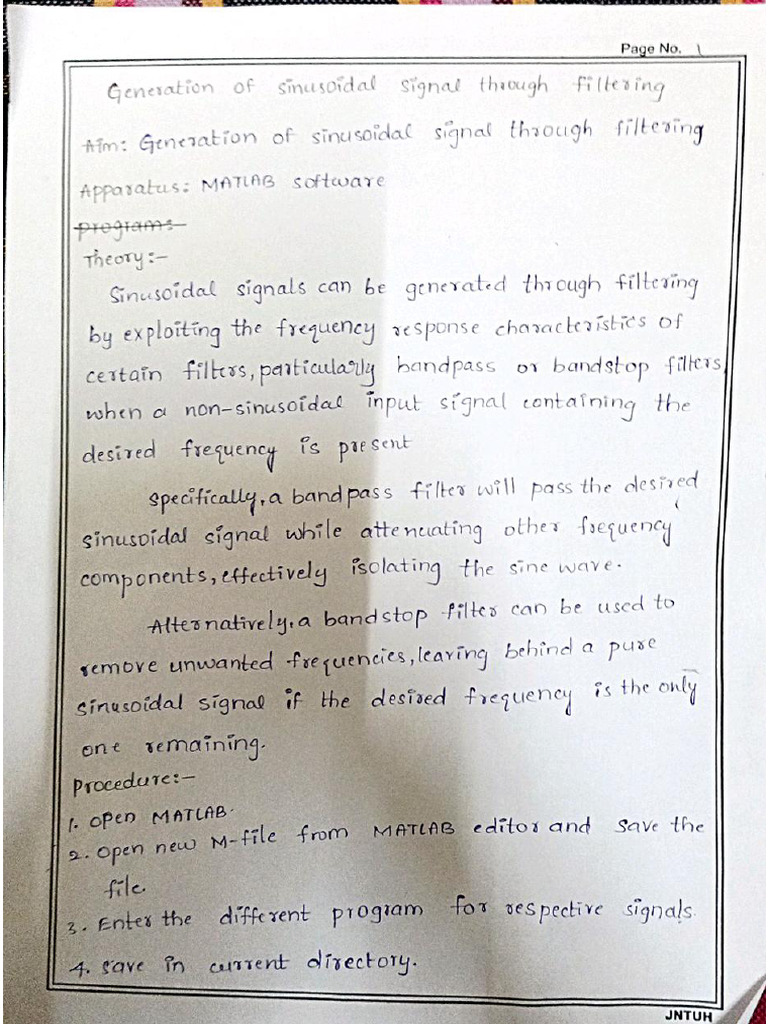 Page No. 1
Generation of sinusoidal signal through filtering
Aim: Generation of sinusoidal signal through filtering
Apparatus: MATLAB software
programs:-
Theory:-
Sinusoidal signals can be generated through filtering
by exploiting the frequency response characteristics of
certain filters, particularly bandpass or bandstop filters,
when a non-sinusoidal input signal containing the
desired frequency is present
Specifically, a bandpass filter will pass the desired
sinusoidal signal while attenuating other frequency
components, effectively isolating the sine wave.
Alternatively, a bandstop filter can be used to
remove unwanted frequencies, leaving behind a pure
sinusoidal signal if the desired frequency is the only
one remaining.
Procedure:-
1. Open MATLAB.
2. Open new M-file from MATLAB editor and save the
file.
3. Enter the different program for respective signals.
4. Save in current directory.
JNTUH